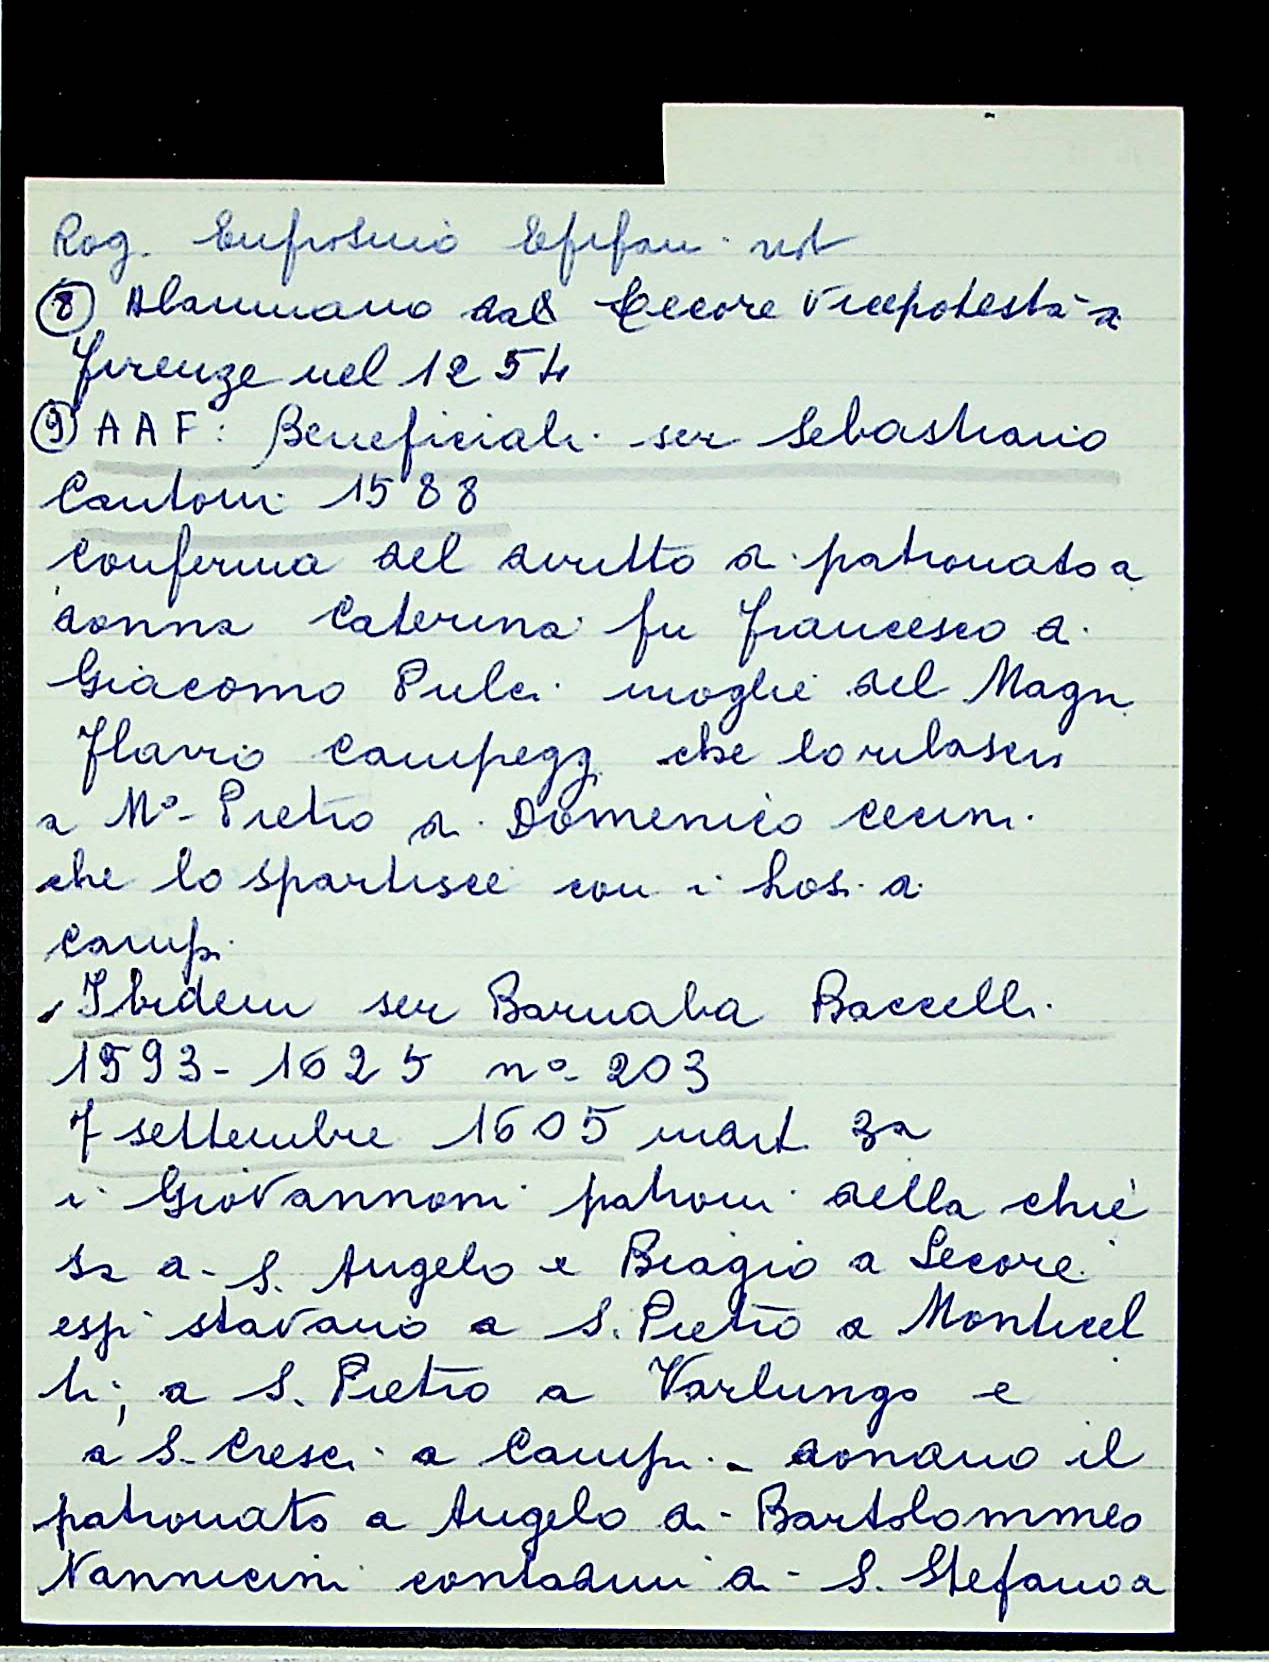 Rog. Eufrosino Epifani not
⑧ Alamanno da Secore Vicepotestà a
Firenze nel 1254
⑨ AAF: Beneficiali ser Sebastiano
Cantoni 1588
conferma del diritto di patronato a
donna Caterina fu Francesco di
Giacomo Pulci moglie del Magn.
Flavio Campeggi che lo rilasciò
a Mº Pietro di Domenico Cecini
che lo spartisce con i hos. di
Campi
Ibidem ser Barnaba Baccelli
1593-1625 nº 203
7 settembre 1605 mart. 3a
i Giovannoni patroni della chie
sa di S. Angelo e Biagio a Lecore
essi stavano a S. Pietro a Monticel
li; a S. Pietro a Varlungo e
a S. Cresci a Campi - donano il
patronato a Angelo di Bartolommeo
Nannicini contadini di S. Stefano a